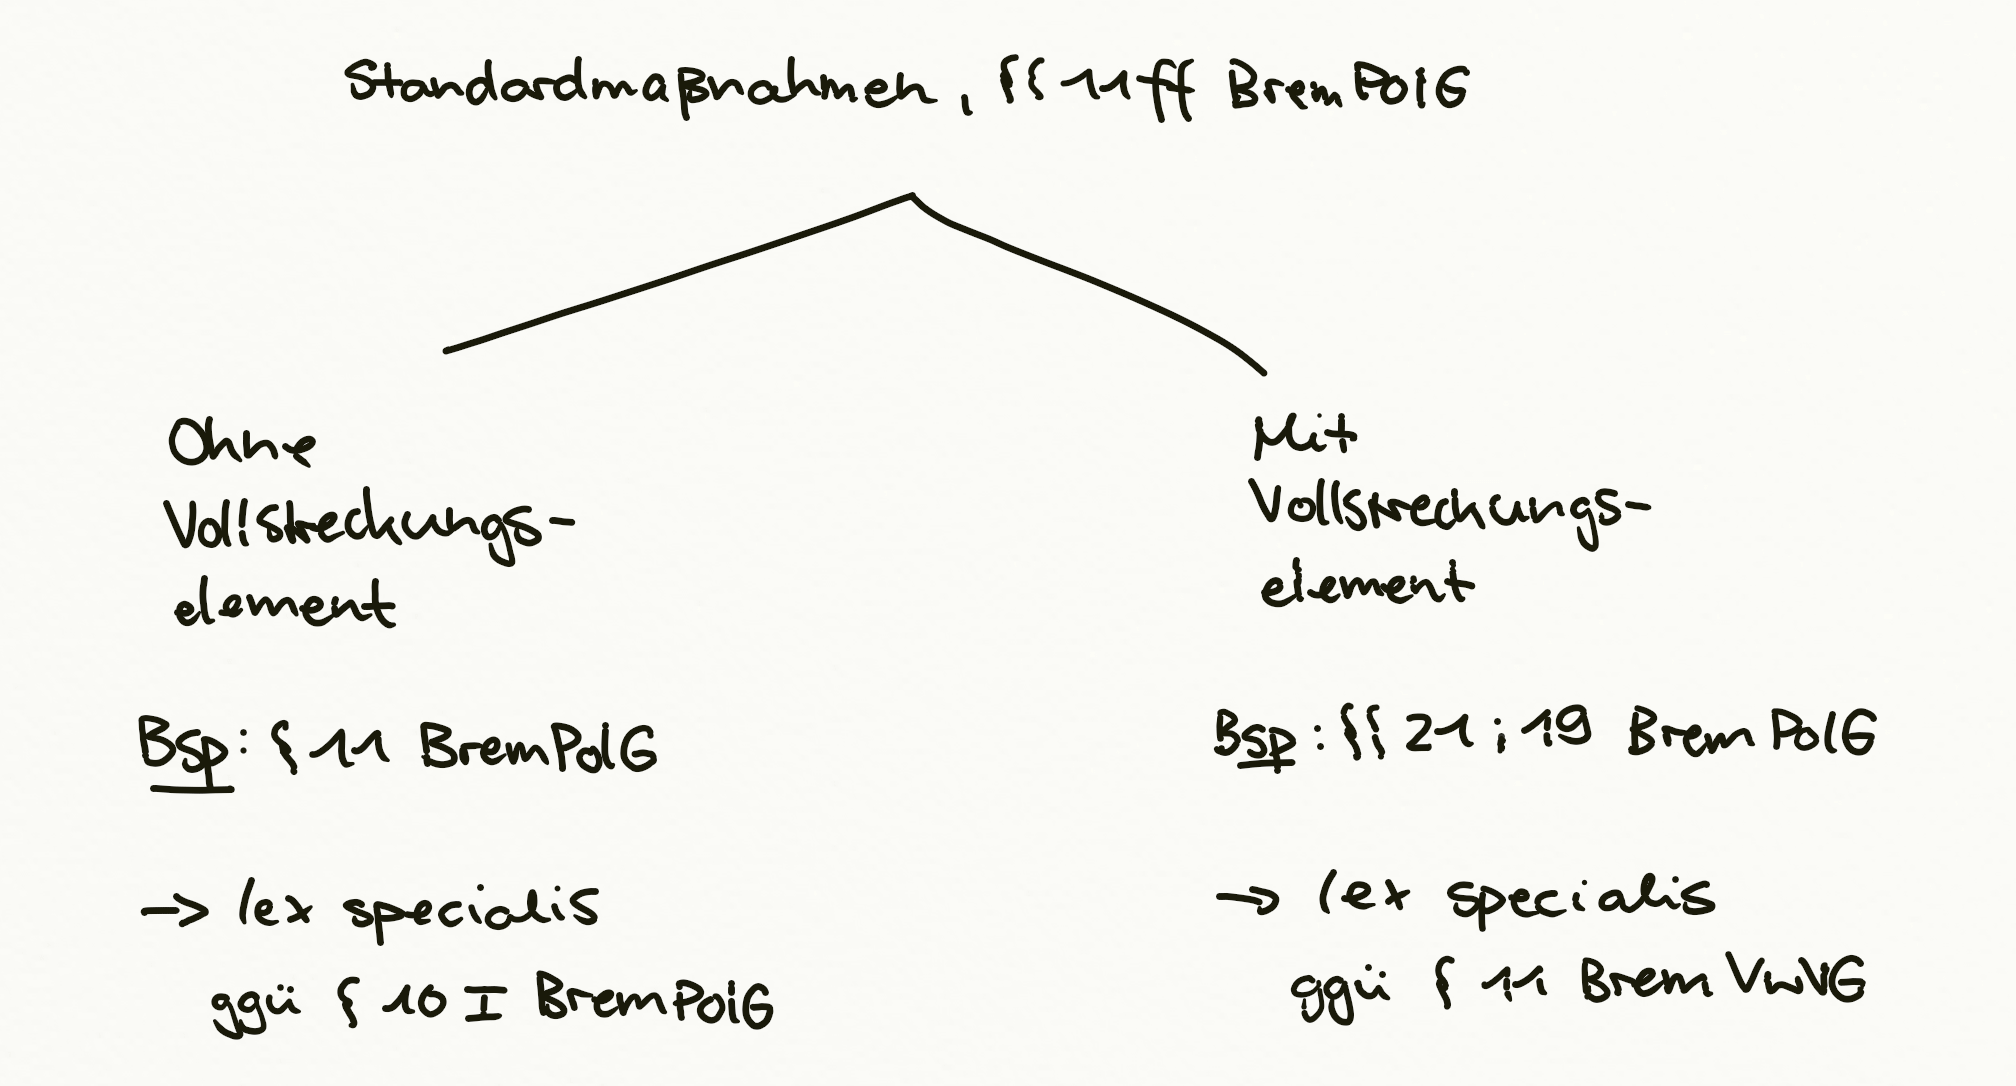 Standardmaßnahmen, §§ 11ff BremPolG
Ohne
Vollstreckungs-
element
Bsp: § 11 BremPolG
→ lex specialis
ggü § 10 I BremPolG
Mit
Vollstreckungs-
element
Bsp: §§ 21; 19 BremPolG
→ lex specialis
ggü § 11 BremVwVG